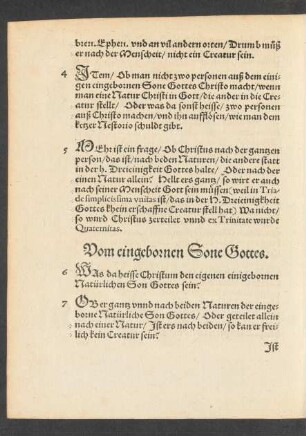 bren. Ephen. vnd an vil andern orten/ Drumb müß
er nach der Menscheit/ nicht ein Creatur sein.
4 ITem/ Ob man nicht zwo personen auß dem eini-
gen eingebornen Sone Gottes Christo macht/ wenn
man eine Natur Christi in Gott/ die ander in die Cre-
atur stellt/ Oder was da sonst heisse/ zwo personen
auß Christo machen/ vnd jhn aufflösen/ wie man dem
ketzer Nestorio schuldt gibt.
5 MEhr ist ein frage/ Ob Christus nach der gantzen
person/ das ist/ nach beden Naturen/ die andere statt
in der h. Dreieinigkeit Gottes halte/ Oder nach der
einen Natur allein? Helt ers gantz/ so wirt er auch
nach seiner Menscheit Gott sein müssen (weil in Tria-
de simplicissima vnitas ist/ das in der H. Dreieinigkheit
Gottes khein erschaffne Creatur stell hat) Wa nicht/
so würd Christus zerteilet vnnd ex Trinitate wurde
Quaternitas.
Vom eingebornen Sone Gottes.
6 WAs da heisse Christum den eigenen einigebornen
Natürlichen Son Gottes sein?
7 OB er gantz vnnd nach beiden Naturen der einge-
borne Natürliche Son Gottes/ Oder geteilet allein
nach einer Natur/ Ist ers nach beiden/ so kan er frei-
lich kein Creatur sein?
Ist